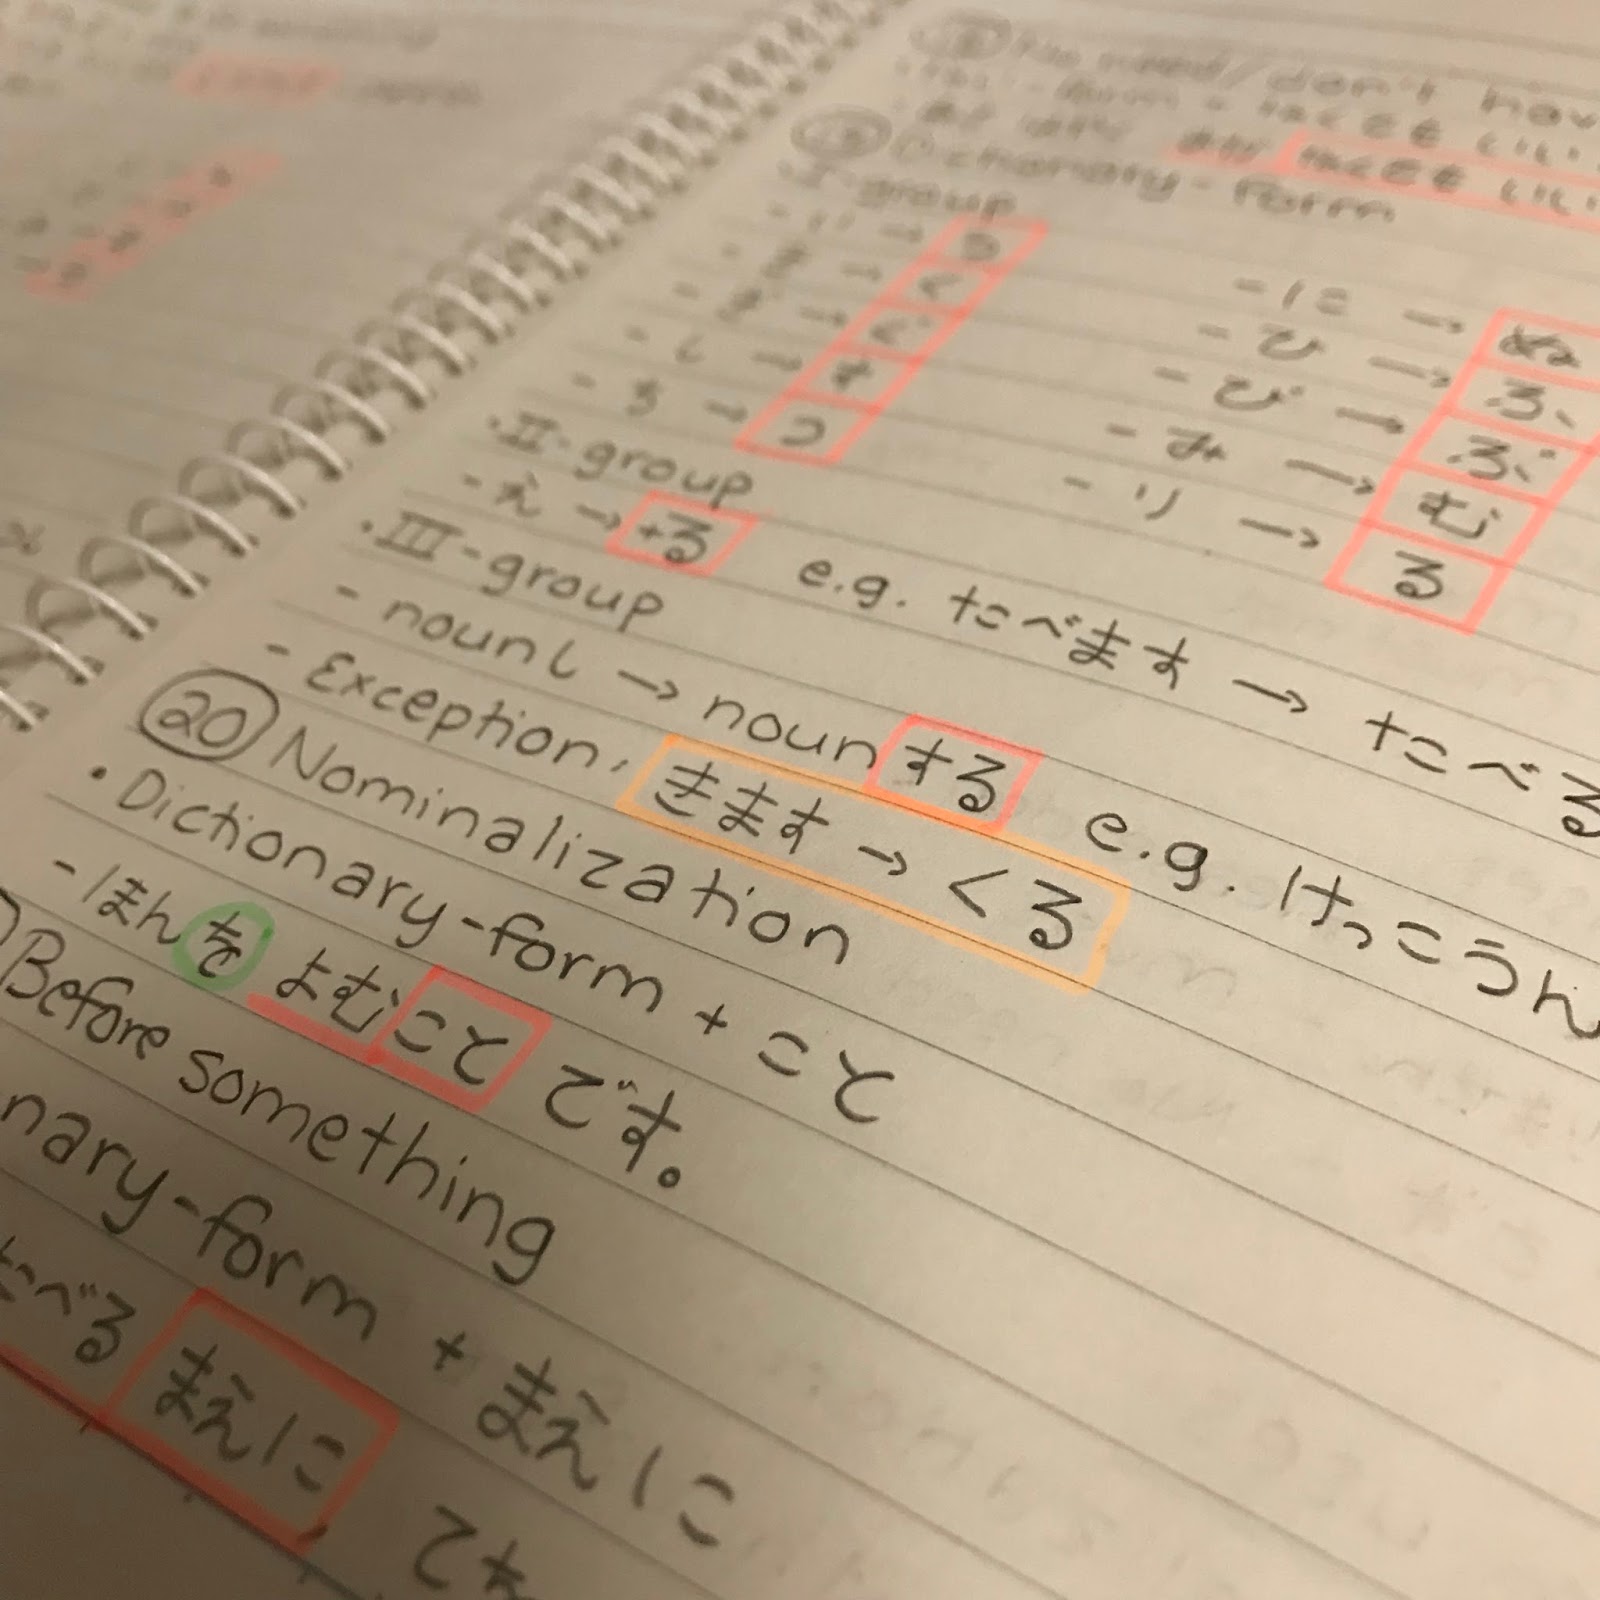 don't hav
なくても いい
なくても いい
Dictionary-form
・I-group
- い → う
- き → く
- ぎ → ぐ
- し → す
- ち → つ
- に → ぬ
- ひ → ふ
- び → ぶ
- み → む
- り → る
・II-group
- え → +る e.g. たべます → たべる
・III-group
- nounし → nounする e.g. けっこうん
- Exception, きます → くる
20 Nominalization
・Dictionary-form + こと
- ほんを よむこと です。
Before something
nary-form + まえに
たべる まえに